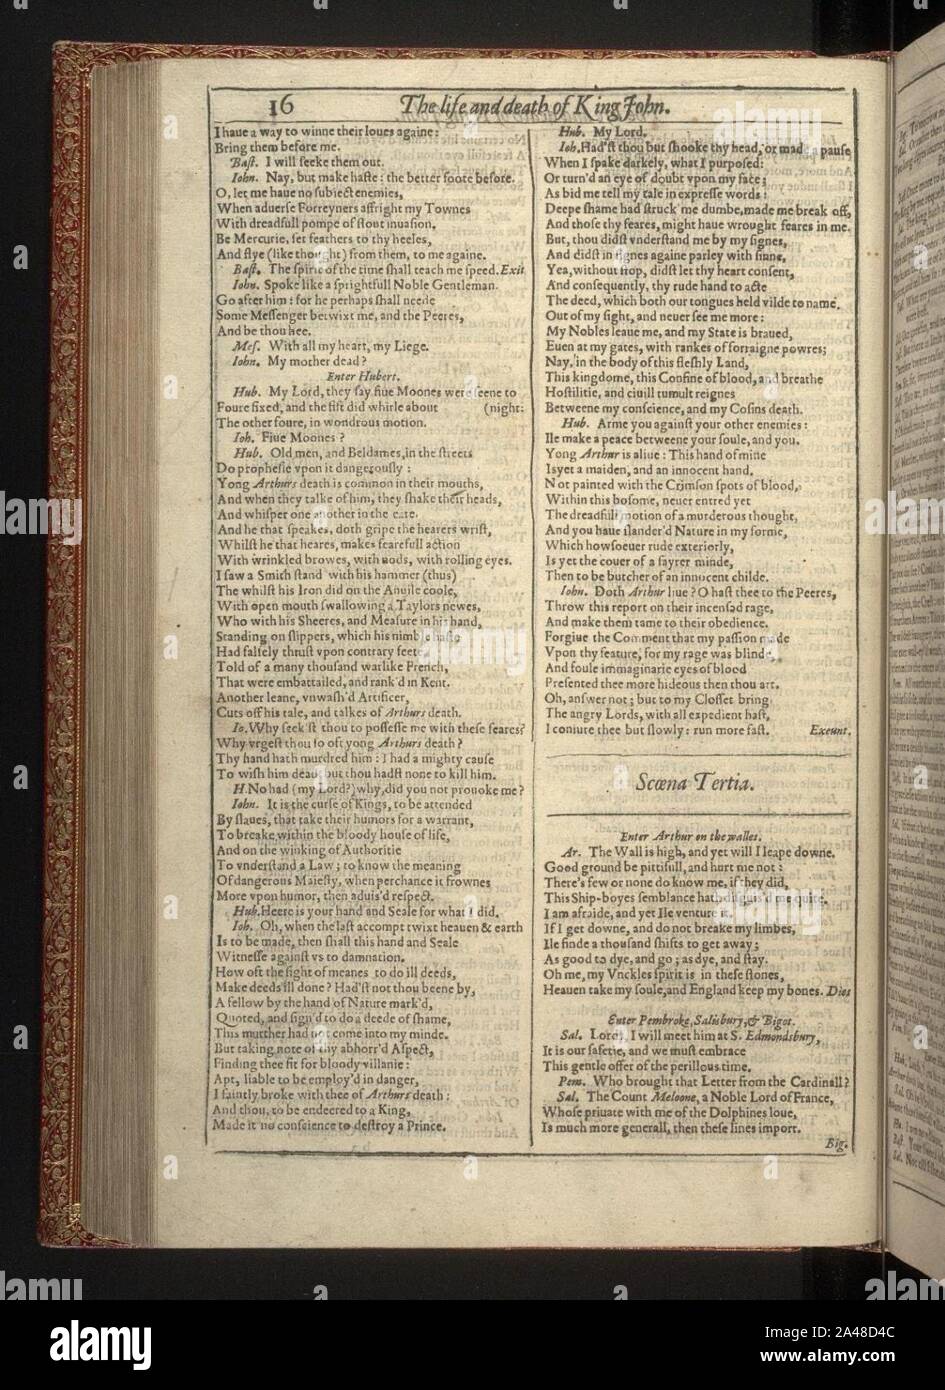 16 The life and death of King John.
I haue a way to winne their loues againe:
Bring them before me.
Bast. I will seeke them out.
Iohn. Nay, but make haste: the better foote before.
O, let me haue no subiect enemies,
When aduerse Forreyners affright my Townes
With dreadfull pompe of stout inuasion.
Be Mercurie, set feathers to thy heeles,
And flye (like thought) from them, to me againe.
Bast. The spirit of the time shall teach me speed. Exit
Iohn. Spoke like a sprightfull Noble Gentleman.
Go after him: for he perhaps shall neede
Some Messenger betwixt me, and the Peeres,
And be thou hee.
Mes. With all my heart, my Liege.
Iohn. My mother dead?
Enter Hubert.
Hub. My Lord, they say fiue Moones were seene to
Foure fixed, and the fift did whirle about (night:
The other foure, in wondrous motion.
Ioh. Fiue Moones?
Hub. Old men, and Beldames, in the streets
Do prophesie vpon it dangerously:
Yong Arthurs death is common in their mouths,
And when they talke of him, they shake their heads,
And whisper one another in the eare.
And he that speakes, doth gripe the hearers wrist,
Whilst he that heares, makes fearefull action
With wrinkled browes, with nods, with rolling eyes.
I saw a Smith stand with his hammer (thus)
The whilst his Iron did on the Anuile coole,
With open mouth swallowing a Taylors newes,
Who with his Sheeres, and Measure in his hand,
Standing on slippers, which his nimble haste
Had falsely thrust vpon contrary feete,
Told of a many thousand warlike French,
That were embattailed, and rank'd in Kent.
Another leane, vnwash'd Artificer,
Cuts off his tale, and talkes of Arthurs death.
Io. Why seek'st thou to possesse me with these feares?
Why vrgest thou so oft yong Arthurs death?
Thy hand hath murdred him: I had a mighty cause
To wish him dead, but thou hadst none to kill him.
H. No had (my Lord?) why, did you not prouoke me?
Iohn. It is the curse of Kings, to be attended
By slaues, that take their humors for a warrant,
To breake within the bloody house of life,
And on the winking of Authoritie
To vnderstand a Law; to know the meaning
Of dangerous Maiesty, when perchance it frownes
More vpon humor, then aduis'd respect.
Hub. Heere is your hand and Seale for what I did.
Ioh. Oh, when the last accompt twixt heauen & earth
Is to be made, then shall this hand and Seale
Witnesse against vs to damnation.
How oft the sight of meanes to do ill deeds,
Make deeds ill done? Had'st not thou beene by,
A fellow by the hand of Nature mark'd,
Quoted, and sign'd to do a deede of shame,
This murther had not come into my minde.
But taking note of thy abhorr'd Aspect,
Finding thee fit for bloody villanie:
Apt, liable to be employ'd in danger,
I faintly broke with thee of Arthurs death:
And thou, to be endeered to a King,
Made it no conscience to destroy a Prince.
Hub. My Lord.
Ioh. Had'st thou but shooke thy head, or made a pause
When I spake darkely, what I purposed:
Or turn'd an eye of doubt vpon my face;
As bid me tell my tale in expresse words:
Deepe shame had struck me dumbe, made me break off,
And those thy feares, might haue wrought feares in me.
But, thou didst vnderstand me by my signes,
And didst in signes againe parley with sinne,
Yea, without stop, didst let thy heart consent,
And consequently, thy rude hand to acte
The deed, which both our tongues held vilde to name.
Out of my sight, and neuer see me more:
My Nobles leaue me, and my State is braued,
Euen at my gates, with rankes of forraigne powres;
Nay, in the body of this fleshly Land,
This kingdome, this Confine of blood, and breathe
Hostilitie, and ciuill tumult reignes
Betweene my conscience, and my Cosins death.
Hub. Arme you against your other enemies:
Ile make a peace betweene your soule, and you.
Yong Arthur is aliue: This hand of mine
Is yet a maiden, and an innocent hand.
Not painted with the Crimson spots of blood,
Within this bosome, neuer entred yet
The dreadfull motion of a murderous thought,
And you haue slander'd Nature in my forme,
Which howsoeuer rude exteriorly,
Is yet the couer of a fayrer minde,
Then to be butcher of an innocent childe.
Iohn. Doth Arthur liue? O hast thee to the Peeres,
Throw this report on their incensed rage,
And make them tame to their obedience.
Forgiue the Comment that my passion made
Vpon thy feature, for my rage was blinde,
And foule immaginarie eyes of blood
Presented thee more hideous then thou art.
Oh, answer not; but to my Closset bring
The angry Lords, with all expedient hast,
I coniure thee but slowly: run more fast. Exeunt.
Scœna Tertia.
Enter Arthur on the walles.
Ar. The Wall is high, and yet will I leape downe.
Good ground be pittifull, and hurt me not:
There's few or none do know me, if they did,
This Ship-boyes semblance hath disguis'd me quite.
I am afraide, and yet Ile venture it.
If I get downe, and do not breake my limbes,
Ile finde a thousand shifts to get away;
As good to dye, and go; as dye, and stay.
Oh me, my Vnckles spirit is in these stones,
Heauen take my soule, and England keep my bones. Dies
Enter Pembroke, Salisbury, & Bigot.
Sal. Lords, I will meet him at S. Edmondsbury,
It is our safetie, and we must embrace
This gentle offer of the perillous time.
Pem. Who brought that Letter from the Cardinall?
Sal. The Count Meloone, a Noble Lord of France,
Whose priuate with me of the Dolphines loue,
Is much more generall, then these lines import.
Big.
alamy
Image ID: 2A48D4C
www.alamy.com